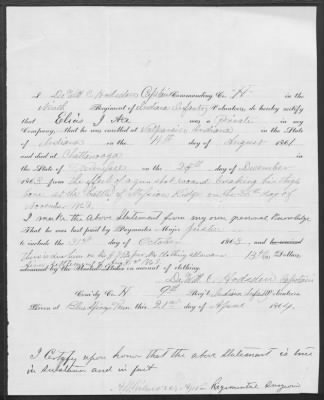 I De Witt C Hodsden Captain Commanding Co. H in the
Ninth Regiment of Indiana Infantry Volunteers, do hereby certify
that Elias J Axe was a Private in my
Company, that he was enlisted at Valparaiso Indiana in the State
of Indiana on the 19th day of August 1861
and died at Chattanooga
in the State of Tennessee on the 25th day of December
1863 from the effect of a gun shot wound breaking his thigh
bone at the battle of Mission Ridge on the 25th day of
November 1863
I make the above Statement from my own personal knowledge
That he was last paid by Paymaster Major
to include the 31st day of October 1863, and
there is due him Clothing Dollars,
advanced by the United States in amount of clothing.
De Witt C. Hodsden Captain
Com'dg Co. H 9th Reg't Indiana Infantry Volunteers
Given at Blue Springs Tenn this 21st day of April 1864
I certify upon honor that the above statement is true
in substance and in fact
Regimental Surgeon